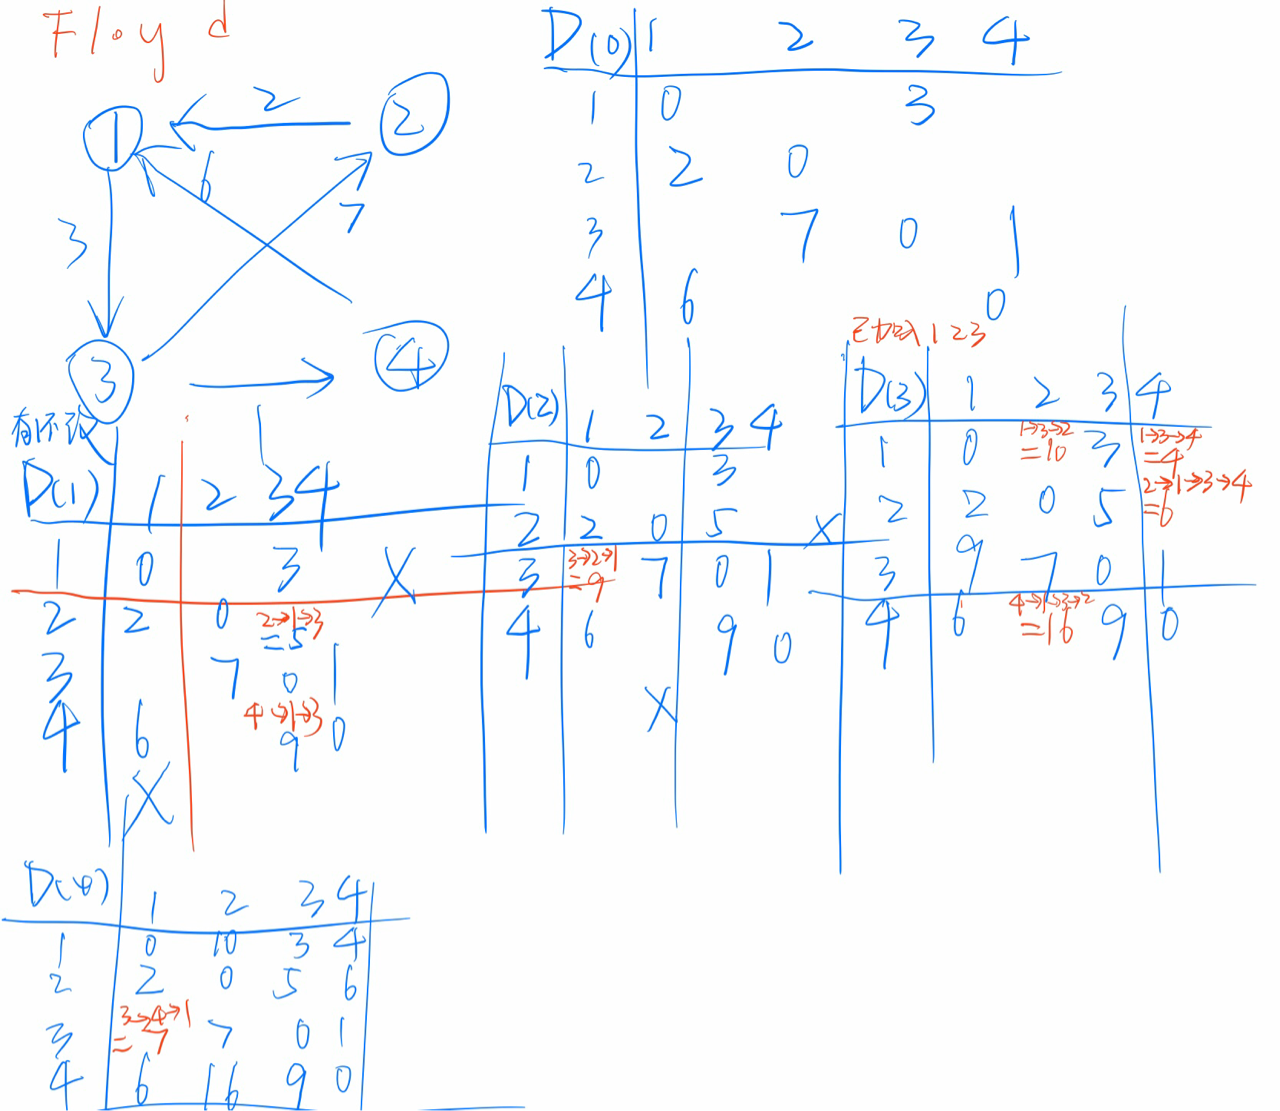 Floyd
1
2
3
4
2
6
7
3
D(0) 1 2 3 4
1 0 3
2 2 0
3 7 0 1
4 6 0
D(1) 1 2 3 4
1 0 3 X
2 2 0 2→1→3 =5
3 7 0 1
4 6 4→1→3 9 0
X
D(2) 1 2 3 4
1 0 3
2 2 0 5 X
3 3→2→1 =9 7 0 1
4 6 9 0
X
已加入 1 2 3
D(3) 1 2 3 4
1 0 1→3→2 =10 3 1→3→4 =4
2 2 0 5 2→1→3→4 =6
3 9 7 0 1
4 6 4→1→3→2 =16 9 0
D(4) 1 2 3 4
1 0 10 3 4
2 2 0 5 6
3 3→4→1 =7 7 0 1
4 6 16 9 0